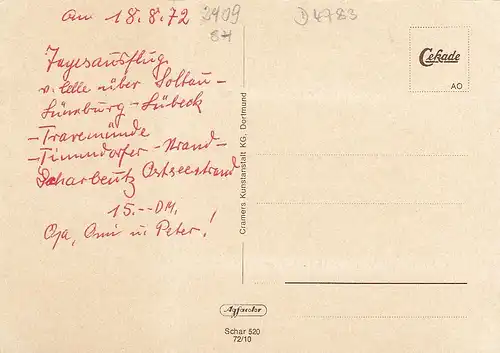 am 18.8.72
2409
84
D 4783
Tagesausflug
v. Celle über Soltau-
Lüneburg-Lübeck
-Travemünde
-Timmdorfer-Strand-
Scharbeutz Ostseestrand
15.--DM.
Opa, Omi u. Peter!
Cramers Kunstanstalt KG. Dortmund
Cekade
AO
Agfacolor
Schar 520
72/10